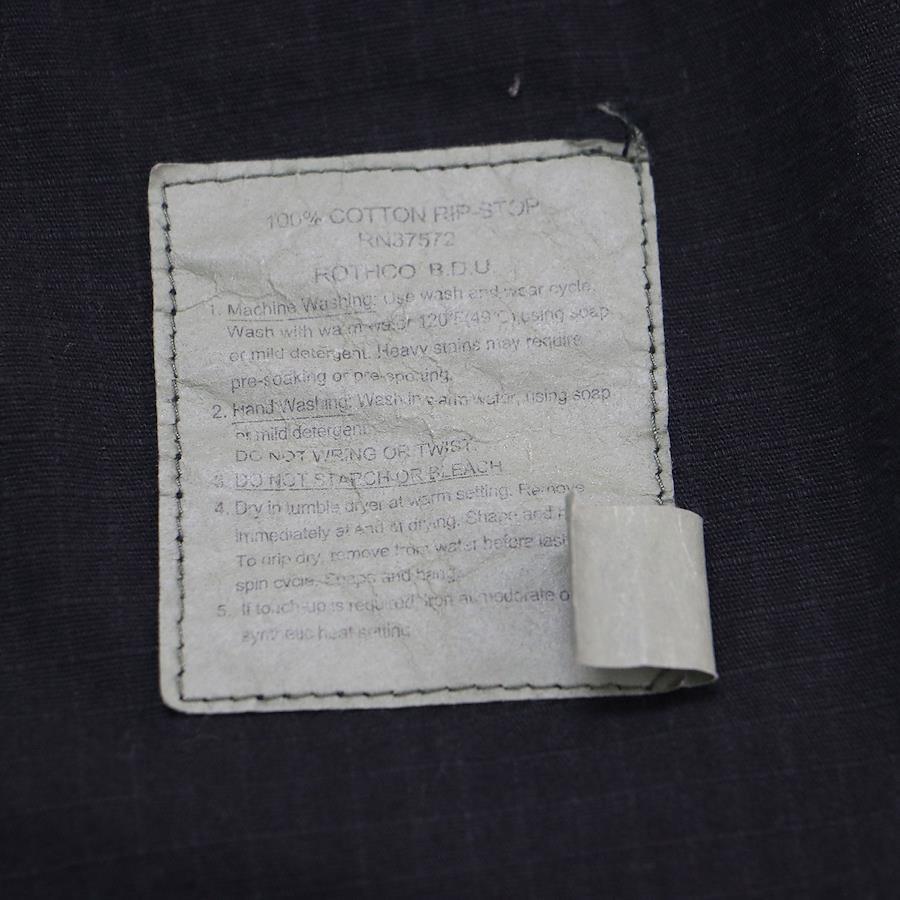 100% COTTON RIP-STOP
RN37572
ROTHCO B.D.U.
1. Machine Washing: Use wash and wear cycle.
Wash with warm water 120°F(49°C) using soap
or mild detergent. Heavy stains may require
pre-soaking or pre-spotting.
2. Hand Washing: Wash in warm water, using soap
or mild detergent.
DO NOT WRING OR TWIST.
3. DO NOT STARCH OR BLEACH
4. Dry in tumble dryer at warm setting. Remove
immediately at end of drying. Shape and
To drip dry, remove from water before last
spin cycle. Shape and hang.
5. If touch-up is required iron at moderate
synthetic heat setting